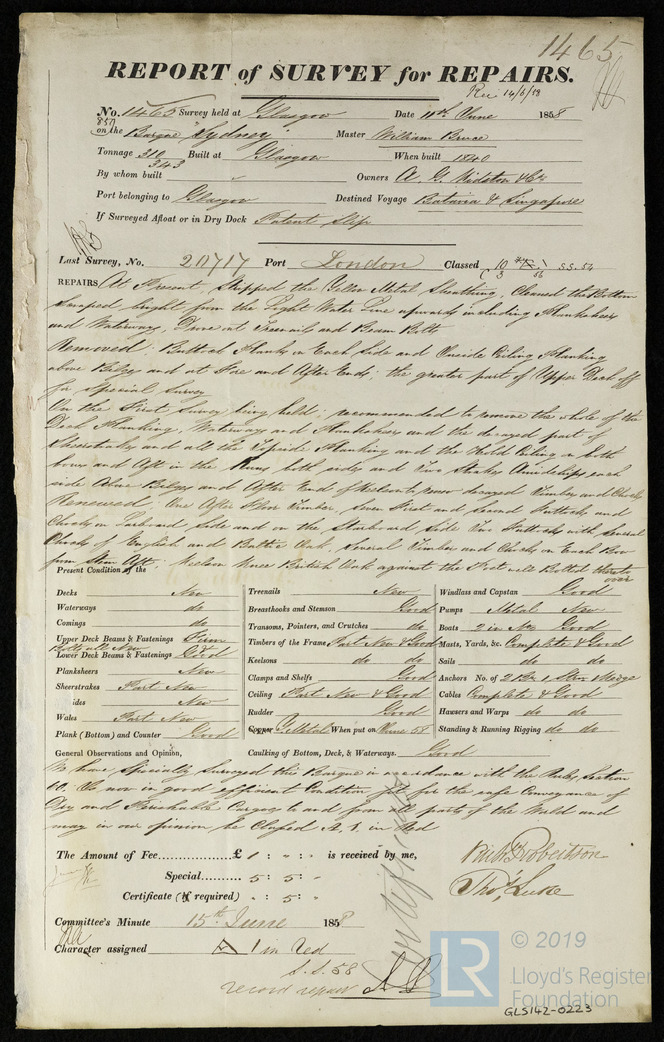 1465
REPORT of SURVEY for REPAIRS.
Rec 14/6/58
No. 1465 Survey held at Glasgow Date 11th June 1858
857
on the Barque "Sydney" Master William Bruce
Tonnage 310 Built at Glasgow When built 1840
343
By whom built Owners A. G. & Co
Port belonging to Glasgow Destined Voyage Batavia & Singapore
If Surveyed Afloat or in Dry Dock Patent Slip
Last Survey, No. 20717 Port London Classed 10 S.S. 54
REPAIRS At Present, Stripped the Yellow Metal Sheathing, Cleaned the Bottom
Scraped bright from the Light Water Line upwards including Planksheers
and Waterways, Drove out Treenails and Beam Bolts,
Removed: Buttock Planks on Each Side and Outside Ceiling Planking
above Bilges and at Fore and After Ends; the greater part of Upper Deck off
for Special Survey
On the First Survey being held, recommended to remove the whole of the
Deck Planking, Waterways and Planksheers and the decayed part of
Sheerstrakes and all the Topside Planking and the Hold Ceiling in both
bows and Aft in the Runs both sides and Two Strakes Amidships each
side Above Bilges and After End of Keelson & remove decayed Timber and Chocks
Renewed One After Floor Timber, Seven First and Second Futtocks and
Chocks on Larboard side and on the Starboard Side Two Futtocks with Several
Chocks of English and Baltic Oak, Several Timber and Chocks on Each Bow
from Stem Aft. Keelson Knee British Oak against the Post well Bolted thereto
over
Present Condition of the
Decks New
Waterways do
Comings do
Upper Deck Beams & Fastenings Firm
Bolts all New
Lower Deck Beams & Fastenings Good
Planksheers New
Sheerstrakes Part New
ides New
Wales Part New
Plank (Bottom) and Counter Good
Treenails New
Breasthooks and Stemson Good
Transoms, Pointers, and Crutches do
Timbers of the Frame Part New & Good
Keelsons do do
Clamps and Shelfs Good
Ceiling Part New & Good
Rudder Good
Copper Y. Metal When put on June 58
Windlass and Capstan Good
Pumps Metal New
Boats 2 in No Good
Masts, Yards, &c. Complete & Good
Sails do do
Anchors No. of 2 Br 1 Strm & Kedge
Cables Complete & Good
Hawsers and Warps do do
Standing & Running Rigging do do
General Observations and Opinion, Caulking of Bottom, Deck, & Waterways. Good
We have Specially Surveyed this Barque in accordance with the Rules, Section
60. Is now in good efficient Condition, fit for the safe Conveyance of
Dry and Perishable Cargoes to and from all parts of the World and
may in our opinion be Classed A.1. in Red
The Amount of Fee £ 1 : " : " is received by me,
Special 5 : 5 : "
Certificate (if required) " : 5 : "
Robertson
Thos Luke
Certificate
Committee's Minute 15th June 1858
Character assigned 1 in Red
S.S. 58
record repair
LR
© 2019
Lloyd's Register
Foundation
GLS142-0223